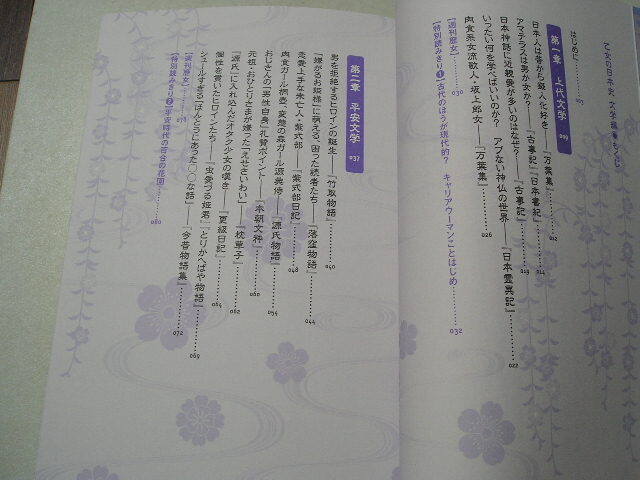 乙女の日本史 文学編●もくじ
はじめに……003
第一章 上代文学 009
日本人は昔から擬人化好き――『万葉集』……012
アマテラスは男か女か？――『古事記』『日本書紀』……014
日本神話に近親愛が多いのはなぜ？――『古事記』……019
いったい何を学べばいいのか？ アブない神仏の世界――『日本霊異記』……022
肉食系女流歌人・坂上郎女――『万葉集』……026
【週刊歴女】……030
【特別読みきり❶】古代のほうが現代的？ キャリアウーマンことはじめ……032
第二章 平安文学 037
男を拒絶するヒロインの誕生――『竹取物語』……040
「嫌がるお姫様」に萌える、困った読者たち――『落窪物語』……044
恋愛上手な未亡人・紫式部――『紫式部日記』……048
肉食ガール桐壺・変態の森ガール源典侍――『源氏物語』……054
おじさんの「男性自身」礼賛ポイント――『本朝文粋』……060
元祖・おひとりさまが嫌った「えせざいわい」――『枕草子』……062
『源氏』に入れ込んだオタク少女の嘆き――『更級日記』……064
個性を貫いたヒロインたち――『虫愛づる姫君』『とりかへばや物語』……069
シュールすぎる「ほんとうにあった○○な話」――『今昔物語集』……072
【週刊歴女】……078
【特別読みきり❷】平安時代の百合の花園……080